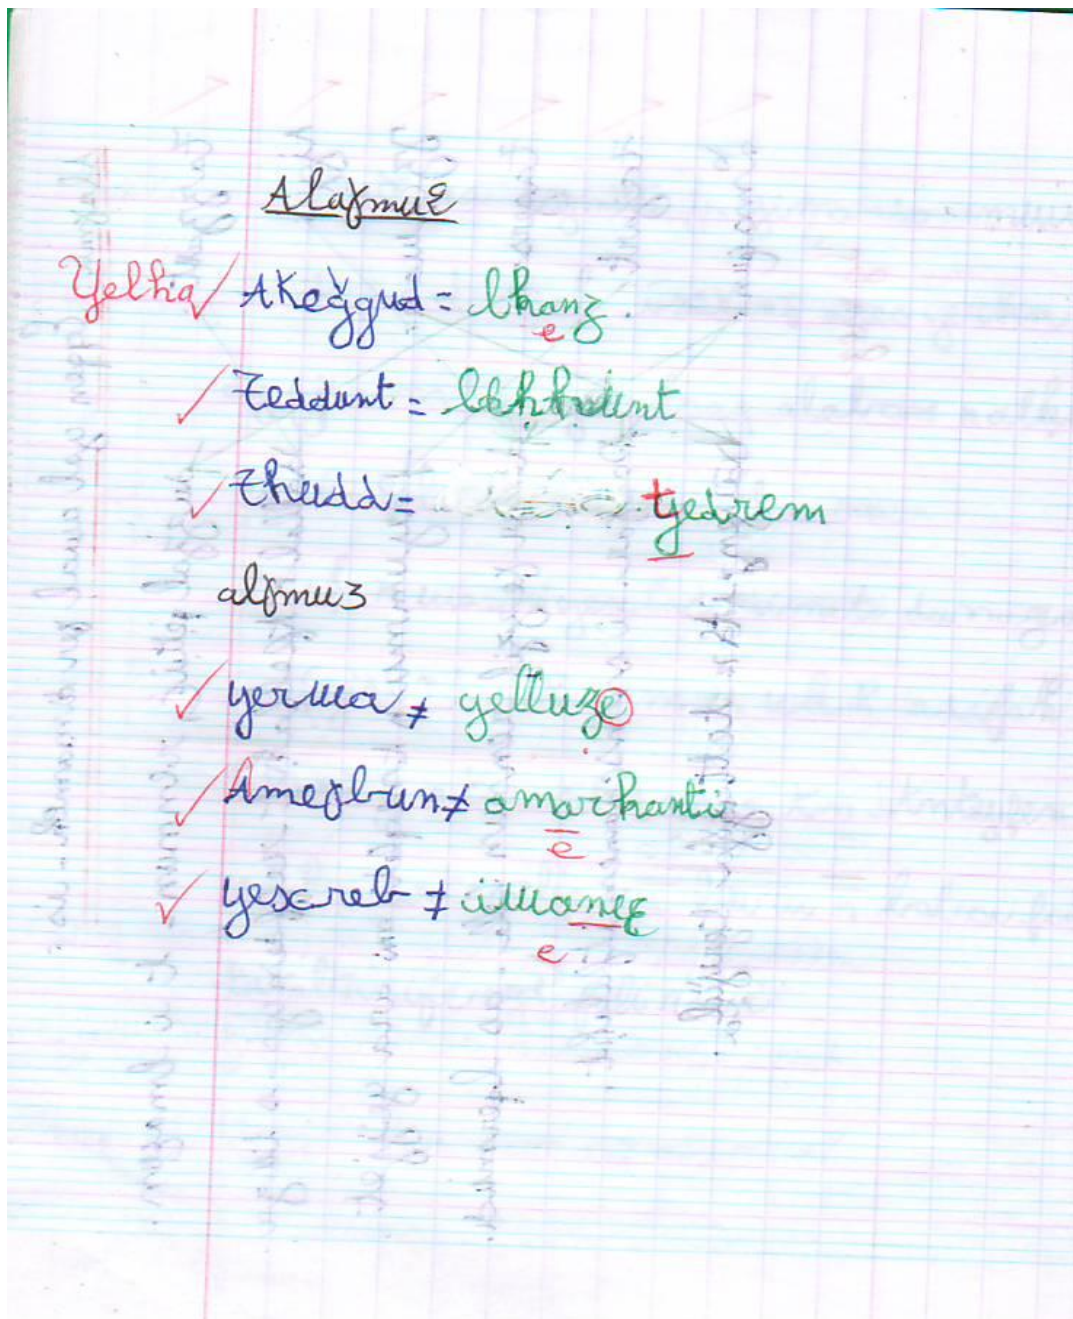 Alaɣmuɛ
Yelha Akeǧǧud = lkanz.
e
Teddunt = lehhkunt
Thudd = tɣedrem
alɣmuɜ
yerwa ≠ yelluze
Ameɣbun ≠ amarkanti
e
yesɛreb ≠ iwaneɛ
e